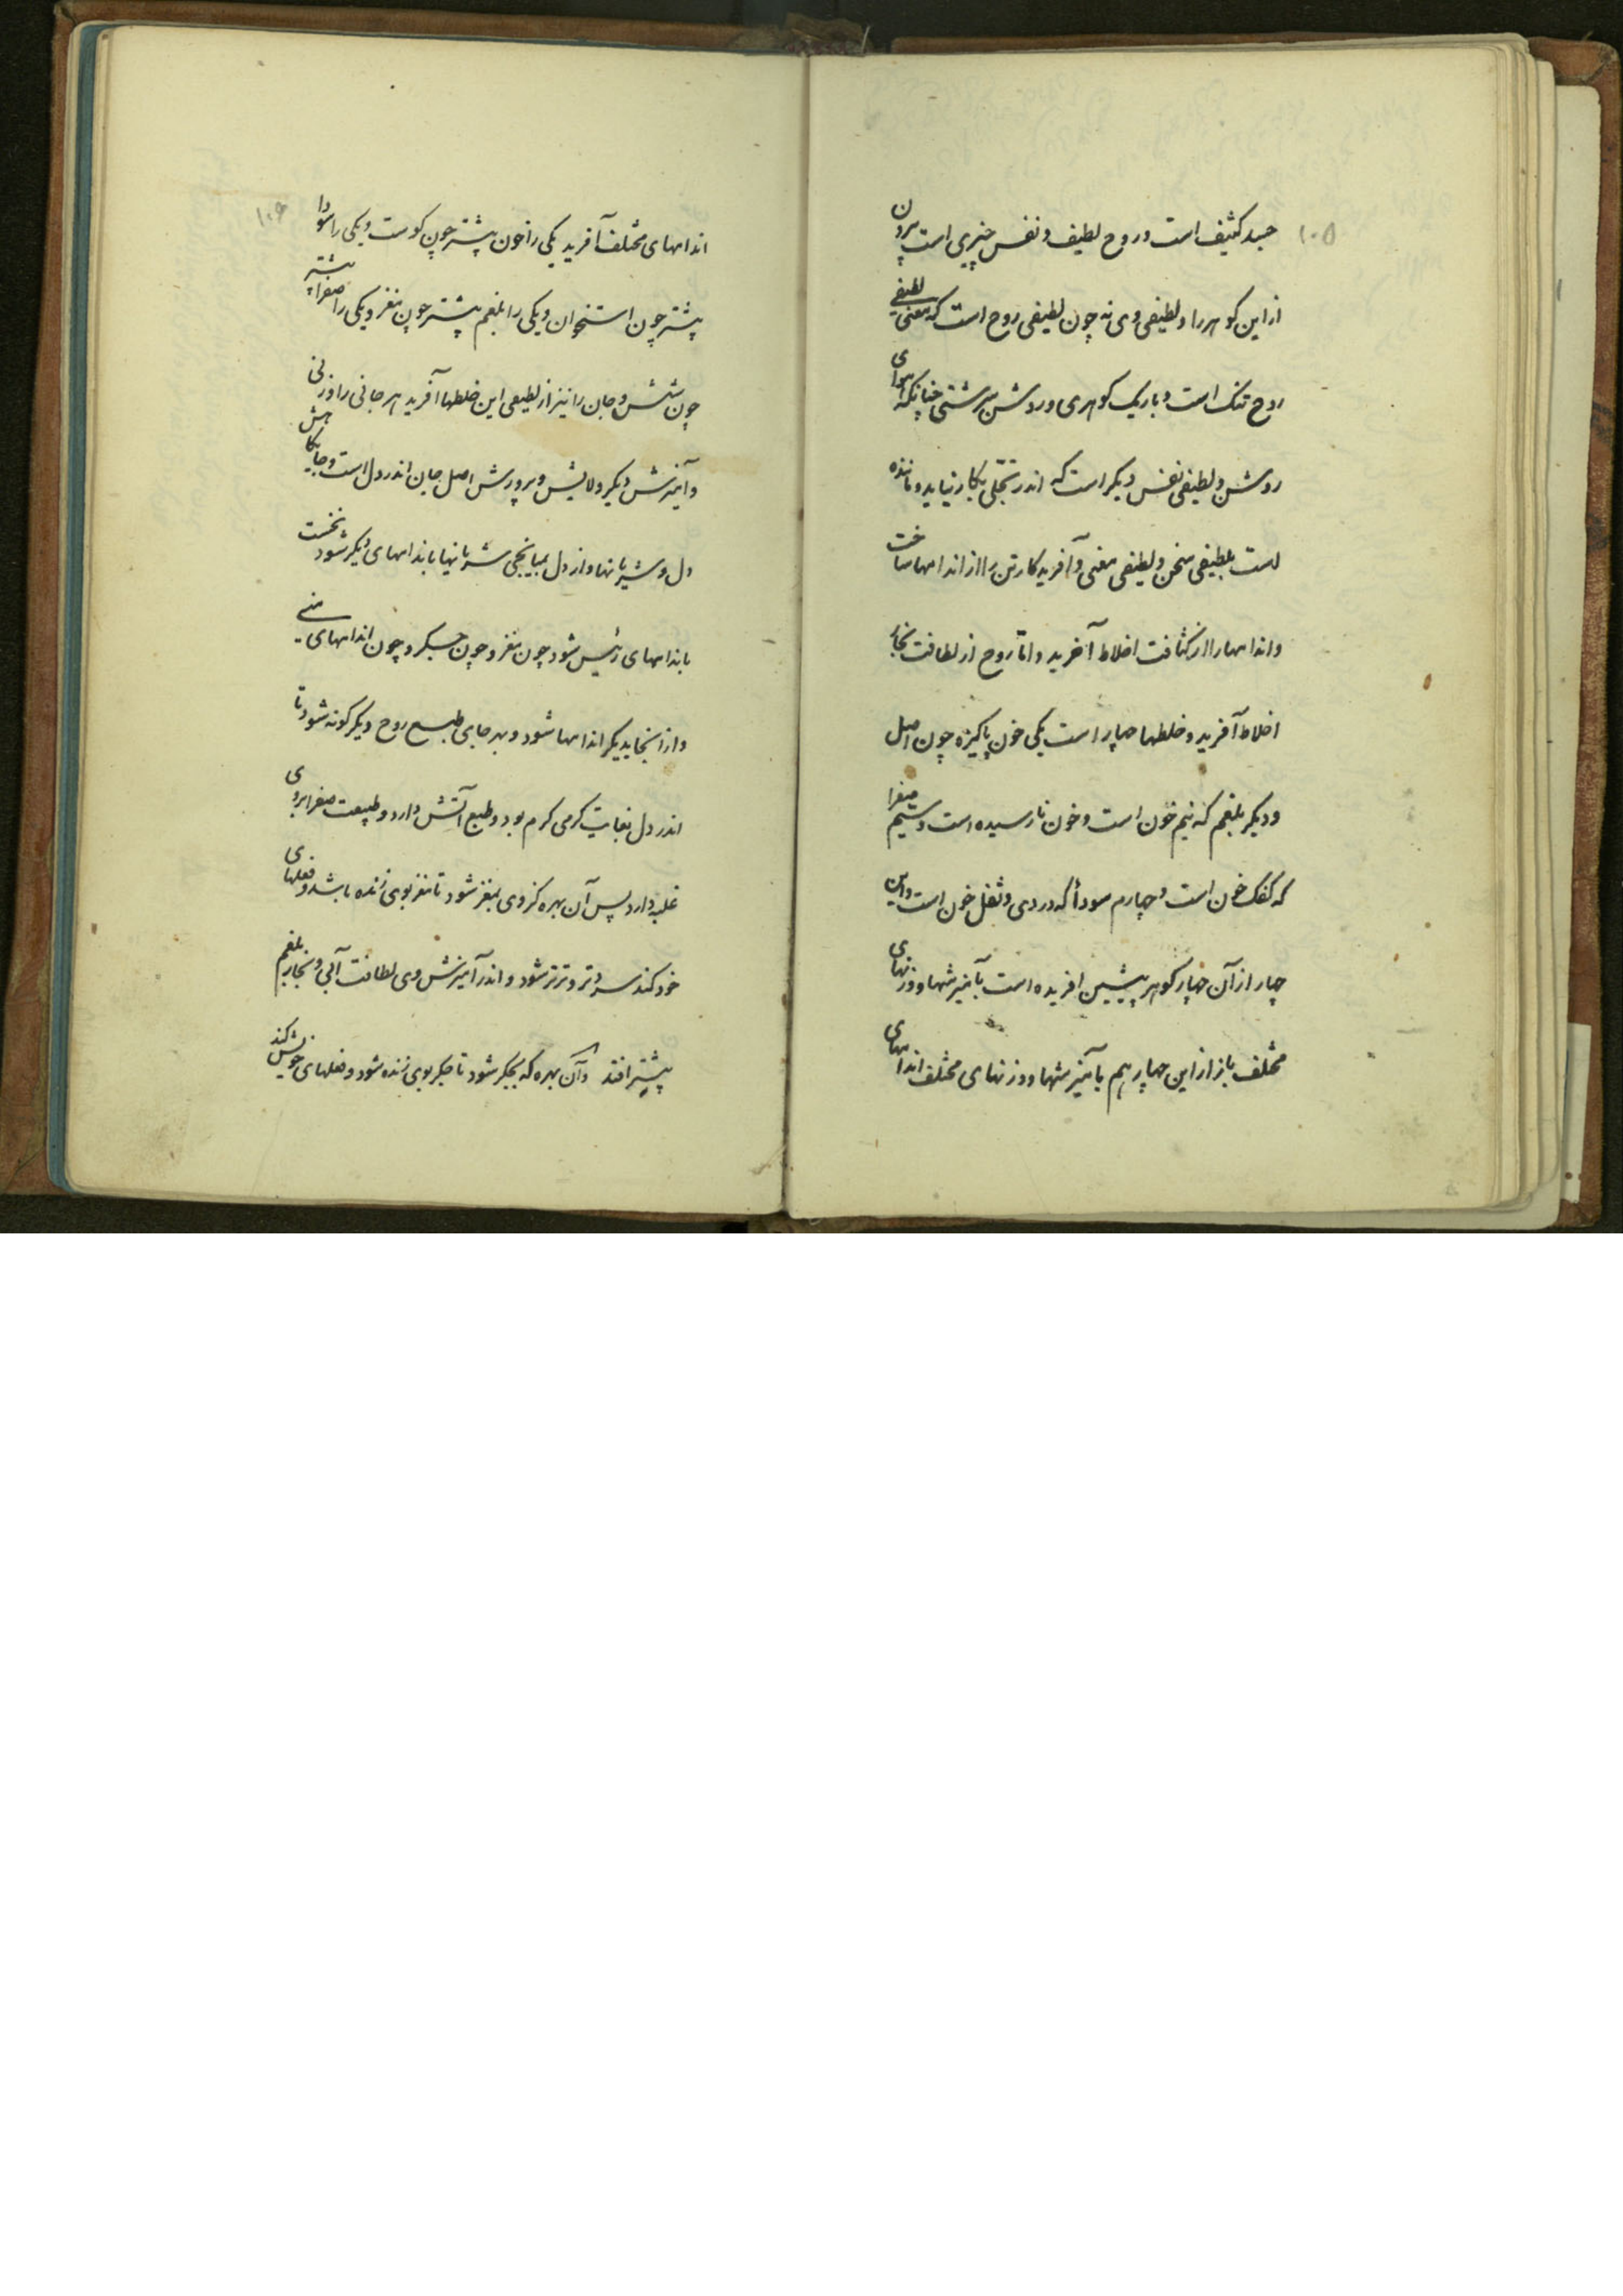 ۱۰۵
جسد کثیف است و روح لطیف و نفس چیزی است بیرون
از این گوهرها و لطیفی وی نه چون لطیفی روح است که معنی لطیفی
روح تنک است و باریک گوهری و روشن سرشتی چنانکه هوای
روشن و لطیفی نفس دیگر است که اندر تجلی بکار نیاید و ماننده
است بلطیفی سخن و لطیفی معنی و آفریدگار تن را از اندامها ساخت
و اندامها را از کثافت اخلاط آفرید و اما روح از لطافت بخار
اخلاط آفرید و خلطها چهار است یکی خون پاکیزه چون اصل
و دیگر بلغم که نیم خون است و خون نارسیده است و سیم صفرا
که کفک خون است و چهارم سودا که دردی و ثفل خون است و این
چهار از آن چهار گوهر پیشین افریده است بآمیزشها و وزنهای
مختلف باز از این چهار هم بآمیزشها و وزنهای مختلف اندامهای
۱۰۶
اندامهای مختلف آفرید یکی را خون پیشتر چون گوشت و یکی را سودا
پیشتر چون استخوان و یکی را بلغم پیشتر چون مغز و یکی را صفرا پیشتر
چون شش و جان را نیز از لطیفی این خلطها آفرید هر جانی را وزنی
و آمیزش دیگر و لایش و پرورش اصل جان اندر دل است و جایگاهش
دل و شریانها و از دل بمیانجی شریانها باندامهای دیگر شود نخست
باندامهای رئیس شود چون مغز و چون جگر و چون اندامهای منی
و از آنجا بدیگر اندامها شود و بهر جای طبع روح دیگر گونه شود تا
اندر دل بغایت گرمی گرم بود و طبع آتش دارد و طبیعت صفرا بروی
غلبه دارد پس آن بهره کز وی بمغز شود تا مغز بوی زنده باشد و فعلهای
خود کند سردتر و ترتر شود و اندر آمیزش وی لطافت آبی و بخار بلغم
پیشتر افتد و آن بهره که بجگر شود تا جگر بوی زنده شود و فعلهای خویش کند